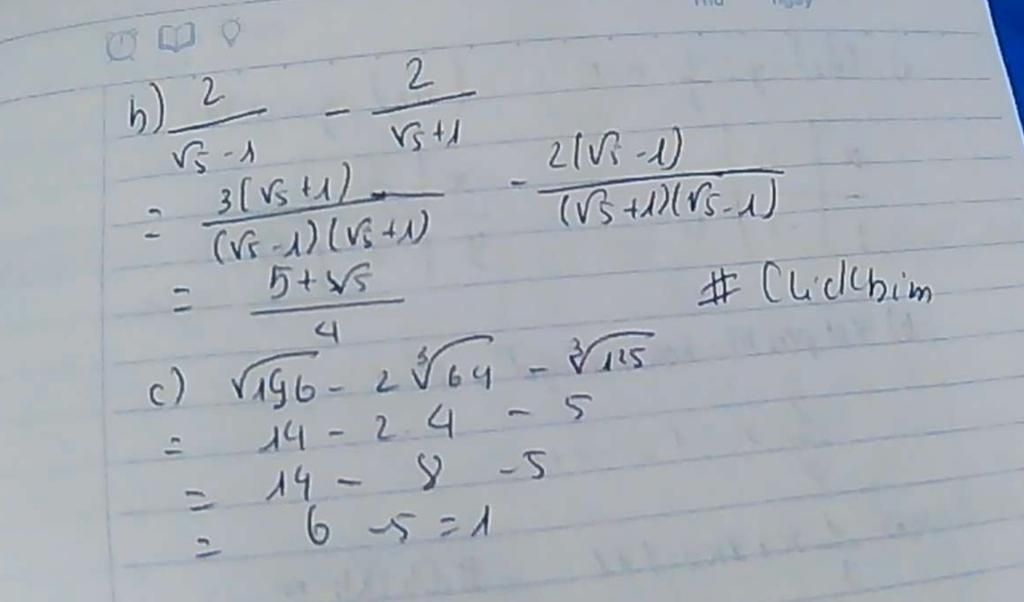 b) 2/(√5 - 1) - 2/(√5 + 1)
= 3(√5 + 1)/((√5 - 1)(√5 + 1)) - 2(√5 - 1)/((√5 + 1)(√5 - 1))
= (5 + √5)/4
c) √196 - 2∛64 - ∛125
= 14 - 2.4 - 5
= 14 - 8 - 5
= 6 - 5 = 1